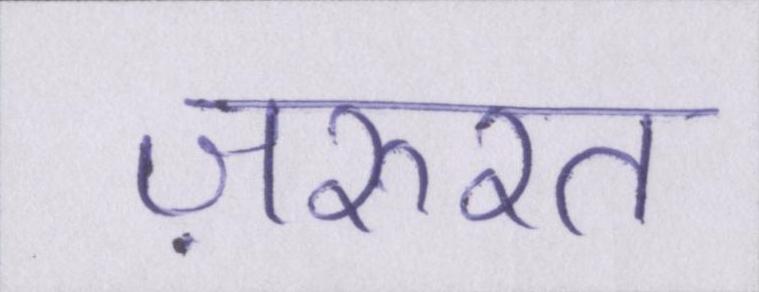 ज़रुरत